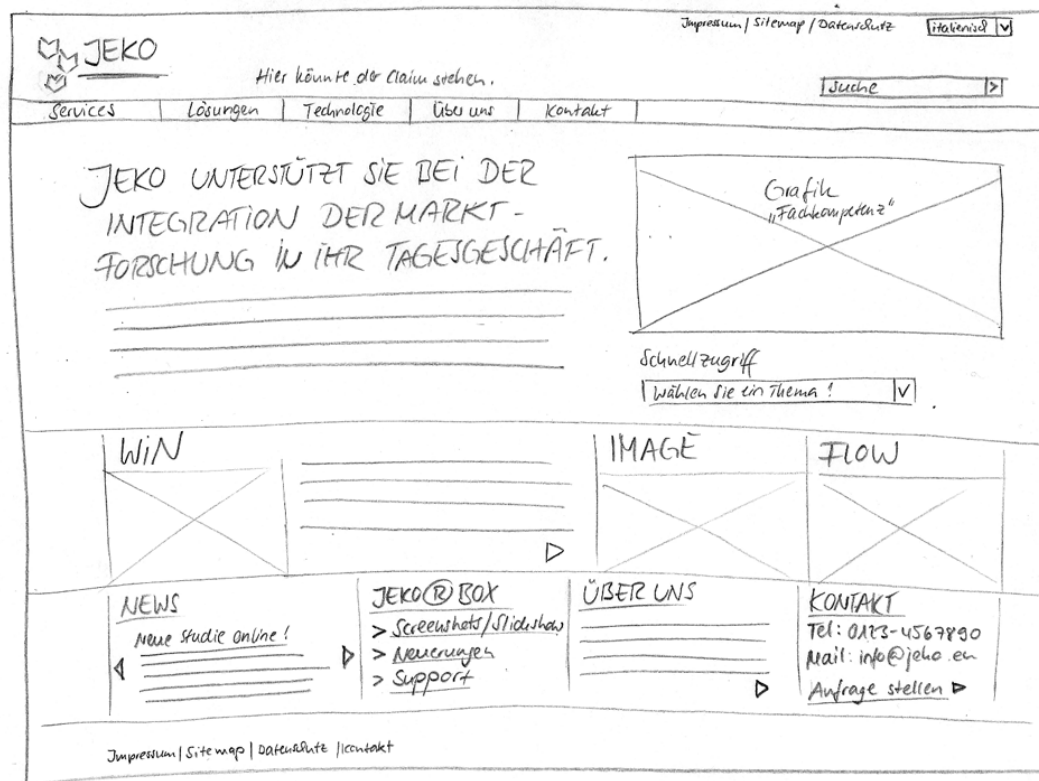 Impressum / Sitemap / Datenschutz
italienisch
JEKO
Hier könnte der Claim stehen.
Suche
Services
Lösungen
Technologie
Über uns
Kontakt
JEKO UNTERSTÜTZT SIE BEI DER
INTEGRATION DER MARKT-
FORSCHUNG IN IHR TAGESGESCHÄFT.
Grafik
„Fachkompetenz“
Schnellzugriff
Wählen Sie ein Thema!
WIN
IMAGE
FLOW
NEWS
Neue Studie online!
JEKO® BOX
> Screenshots/Slideshow
> Neuerungen
> Support
ÜBER UNS
KONTAKT
Tel: 0123-4567890
Mail: info@jeko.eu
Anfrage stellen
Impressum | Sitemap | Datenschutz | Kontakt